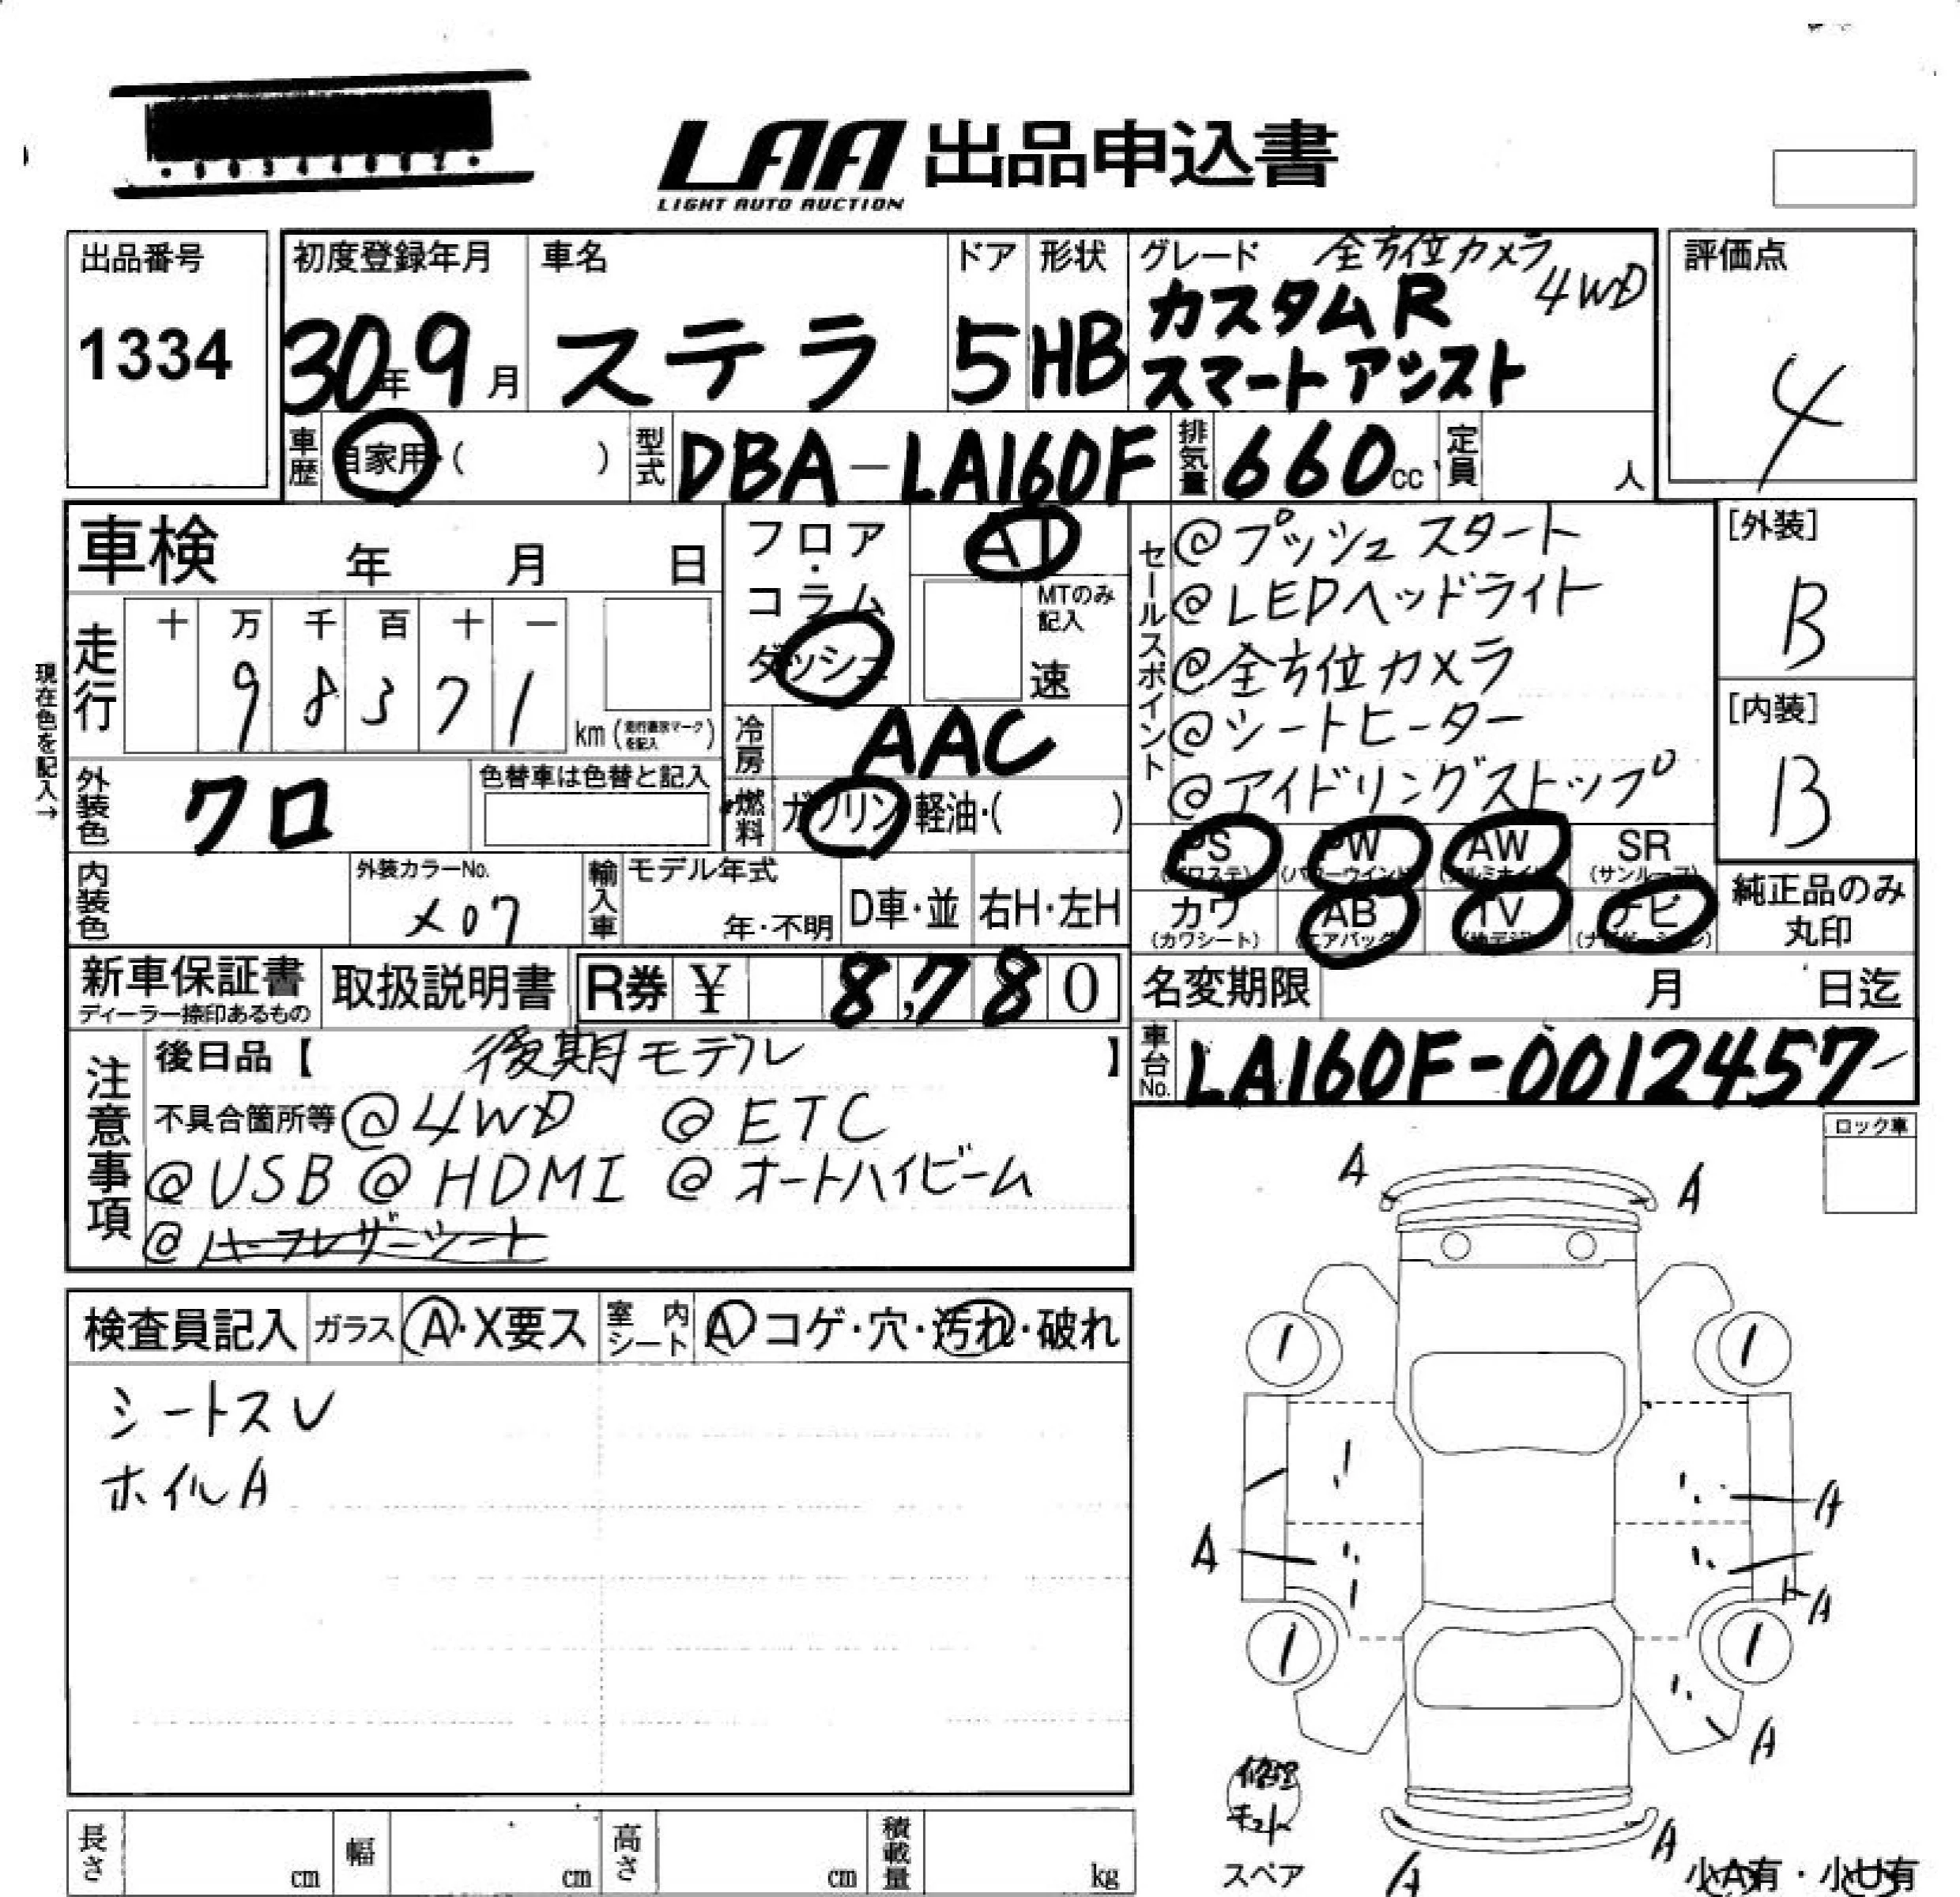 LAA 出品申込書
LIGHT AUTO AUCTION
出品番号
1334
初度登録年月
30年9月
車名
ステラ
ドア
5
形状
HB
グレード 全方位カメラ
カスタムR 4WD
スマートアシスト
評価点
4
車歴 自家用・( )
型式 DBA-LA160F
排気量 660cc
定員 人
車検 年 月 日
フロア・コラム
ダッシュ
AT
MTのみ記入
速
現在色を記入→
走行 十 万 千 百 十 一
9 8 3 7 1
km (走行表示マークを記入)
冷房 AAC
外装色 クロ
色替車は色替と記入
燃料 ガソリン・軽油・( )
内装色
外装カラーNo.
X07
輸入車 モデル年式
年・不明
D車・並
右H・左H
セールスポイント
@プッシュスタート
@LEDヘッドライト
@全方位カメラ
@シートヒーター
@アイドリングストップ
[外装]
B
[内装]
B
PS (パワステ) PW (パワーウインド) AW (アルミホイル) SR (サンルーフ)
カワ (カワシート) AB (エアバッグ) TV (地デジ) ナビ (ナビゲーション)
純正品のみ
丸印
新車保証書
ディーラー捺印あるもの
取扱説明書
R券 ¥ 8,780
名変期限 月 日迄
車台No. LA160F-0012457
注意事項
後日品【 後期モデル 】
不具合箇所等 @4WD @ETC
@USB @HDMI @オートハイビーム
@ハーフレザーシート
ロック車
検査員記入 ガラス A・X要ス 室内シート A コゲ・穴・汚れ・破れ
シートスレ
ホイルA
A A
A A
A
A
A A
修理キット
スペア
小A有・小U有
長さ cm 幅 cm 高さ cm 積載量 kg